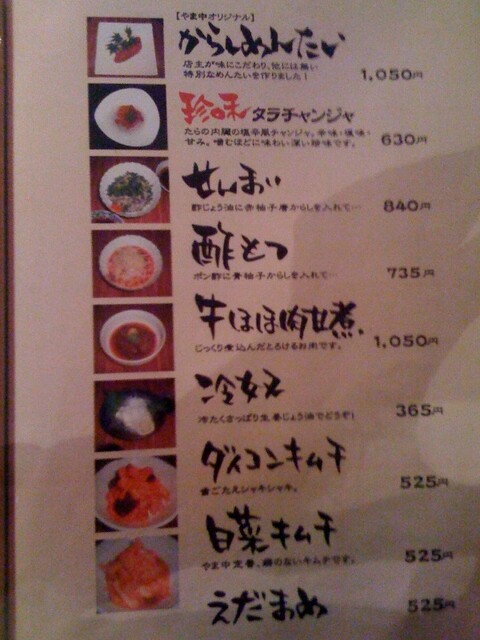 【やま中オリジナル】
からしめんたい
店主が味にこだわり、他には無い
特別なめんたいを作りました!
1,050円
珍味 タラチャンジャ
たらの内臓の塩辛風チャンジャ。辛味・塩味・
甘み。噛むほどに味わい深い珍味です。
630円
せんまい
酢じょう油に赤柚子唐からしを入れて…
840円
酢もつ
ポン酢に青柚子からしを入れて…
735円
牛ほほ肉甘煮
じっくり煮込んだとろけるお肉です。
1,050円
冷奴
冷たくさっぱり生姜じょう油でどうぞ!
365円
ダイコンキムチ
歯ごたえシャキシャキ。
525円
白菜キムチ
やま中定番、癖のないキムチです。
525円
えだまめ
525円